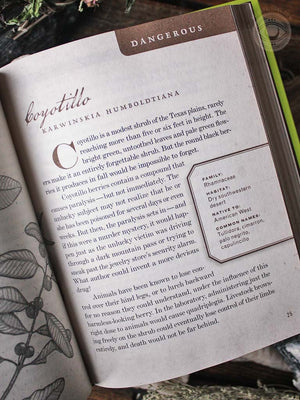 DANGEROUS
coyotillo
KARWINSKIA HUMBOLDTIANA
Coyotillo is a modest shrub of the Texas plains, rarely
reaching more than five or six feet in height. The
bright green, untoothed leaves and pale green flow-
ers make it an entirely forgettable shrub. But the round black ber-
ries it produces in fall would be impossible to forget.
Coyotillo berries contain a compound that
causes paralysis—but not immediately. The
unlucky subject may not realize that he or
she has been poisoned for several days or even
weeks. But then, the paralysis sets in—and
if this were a murder mystery, it would hap-
pen just as the unlucky victim was driving
through a dark mountain pass or trying to
sneak past the jewelry store's security alarm.
What author could invent a more devious
drug?
FAMILY:
Rhamnaceae
HABITAT:
Dry southwestern
deserts
NATIVE TO:
American West
COMMON NAMES:
Tullidora, cimarron,
palo negrito,
capulincillo
Animals have been known to lose con-
trol over their hind legs, or to lurch backward
for no reason they could understand, under the influence of this
harmless-looking berry. In the laboratory, administering just the
right dose to animals would cause quadriplegia. Livestock brows-
ing freely on the shrub could eventually lose control of their limbs
entirely, and death would not be far behind.
25